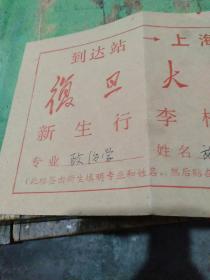 到达站→上海
復旦大
新生行李
专业 政治学 姓名
(此标签由新生填明专业和姓名,然后贴在